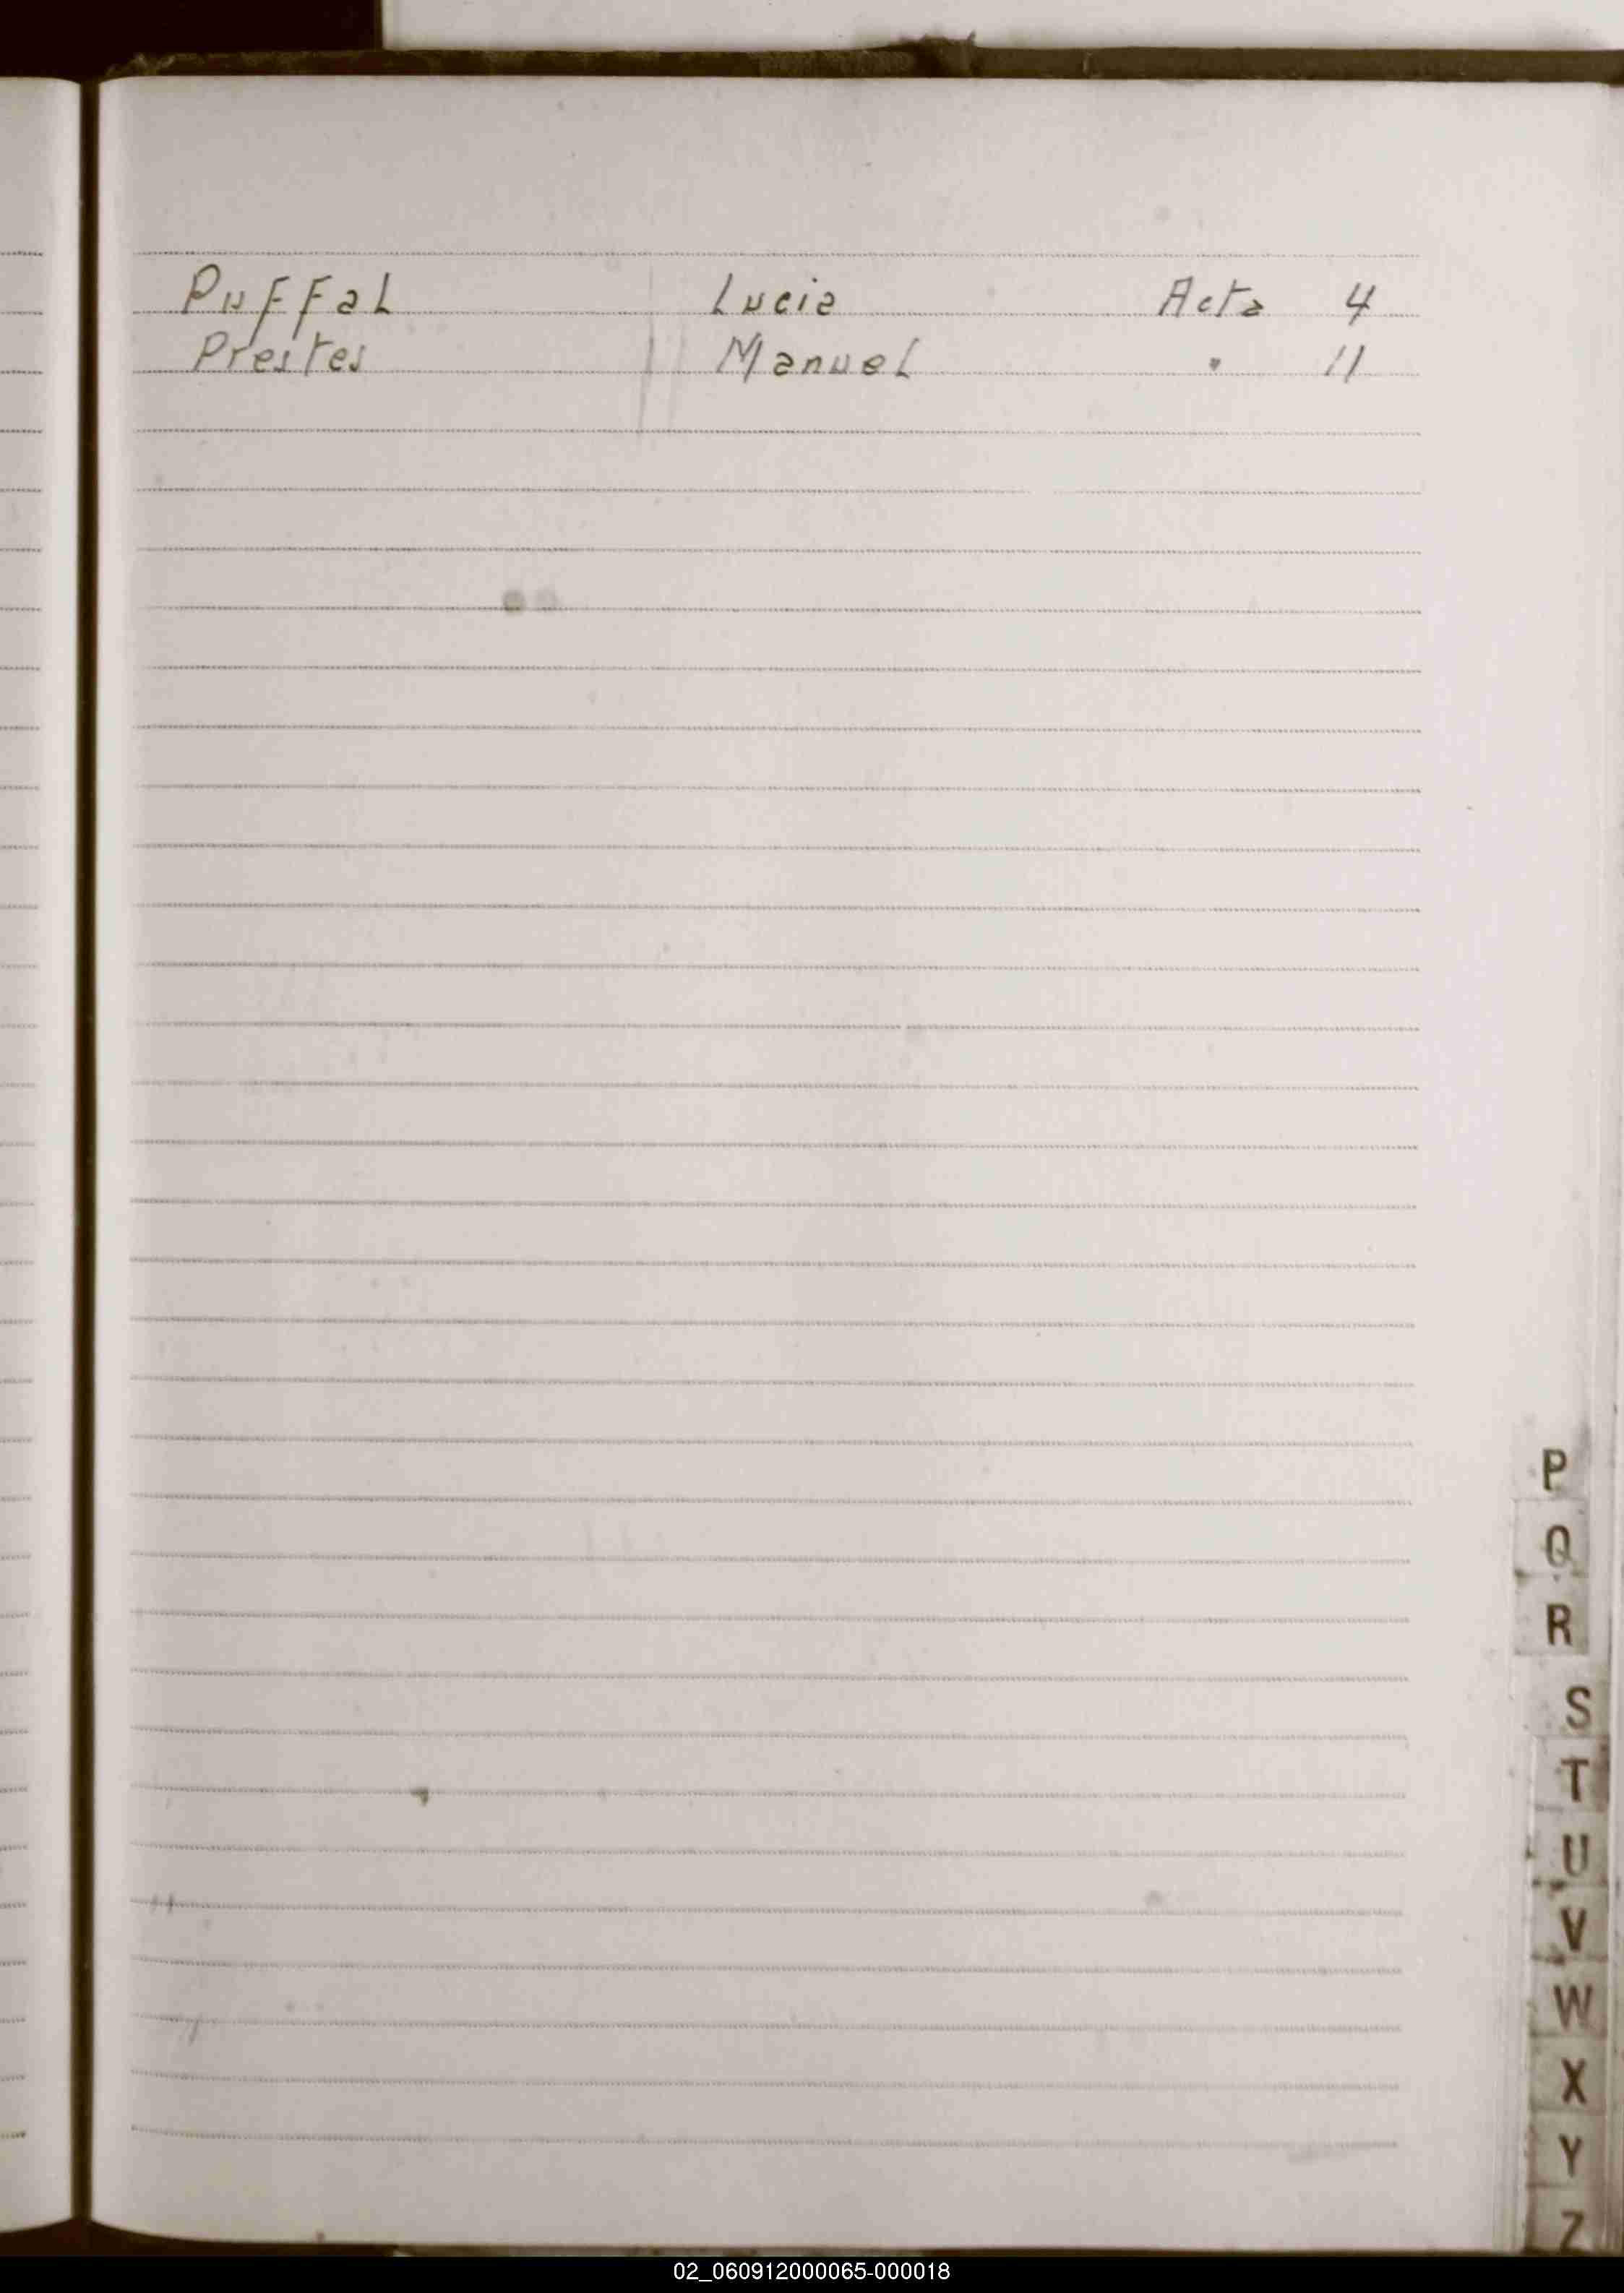 Puffal Lucia Acta 4
Prestes Manuel " 11
P
Q
R
S
T
U
V
W
X
Y
Z
02_060912000065-000018